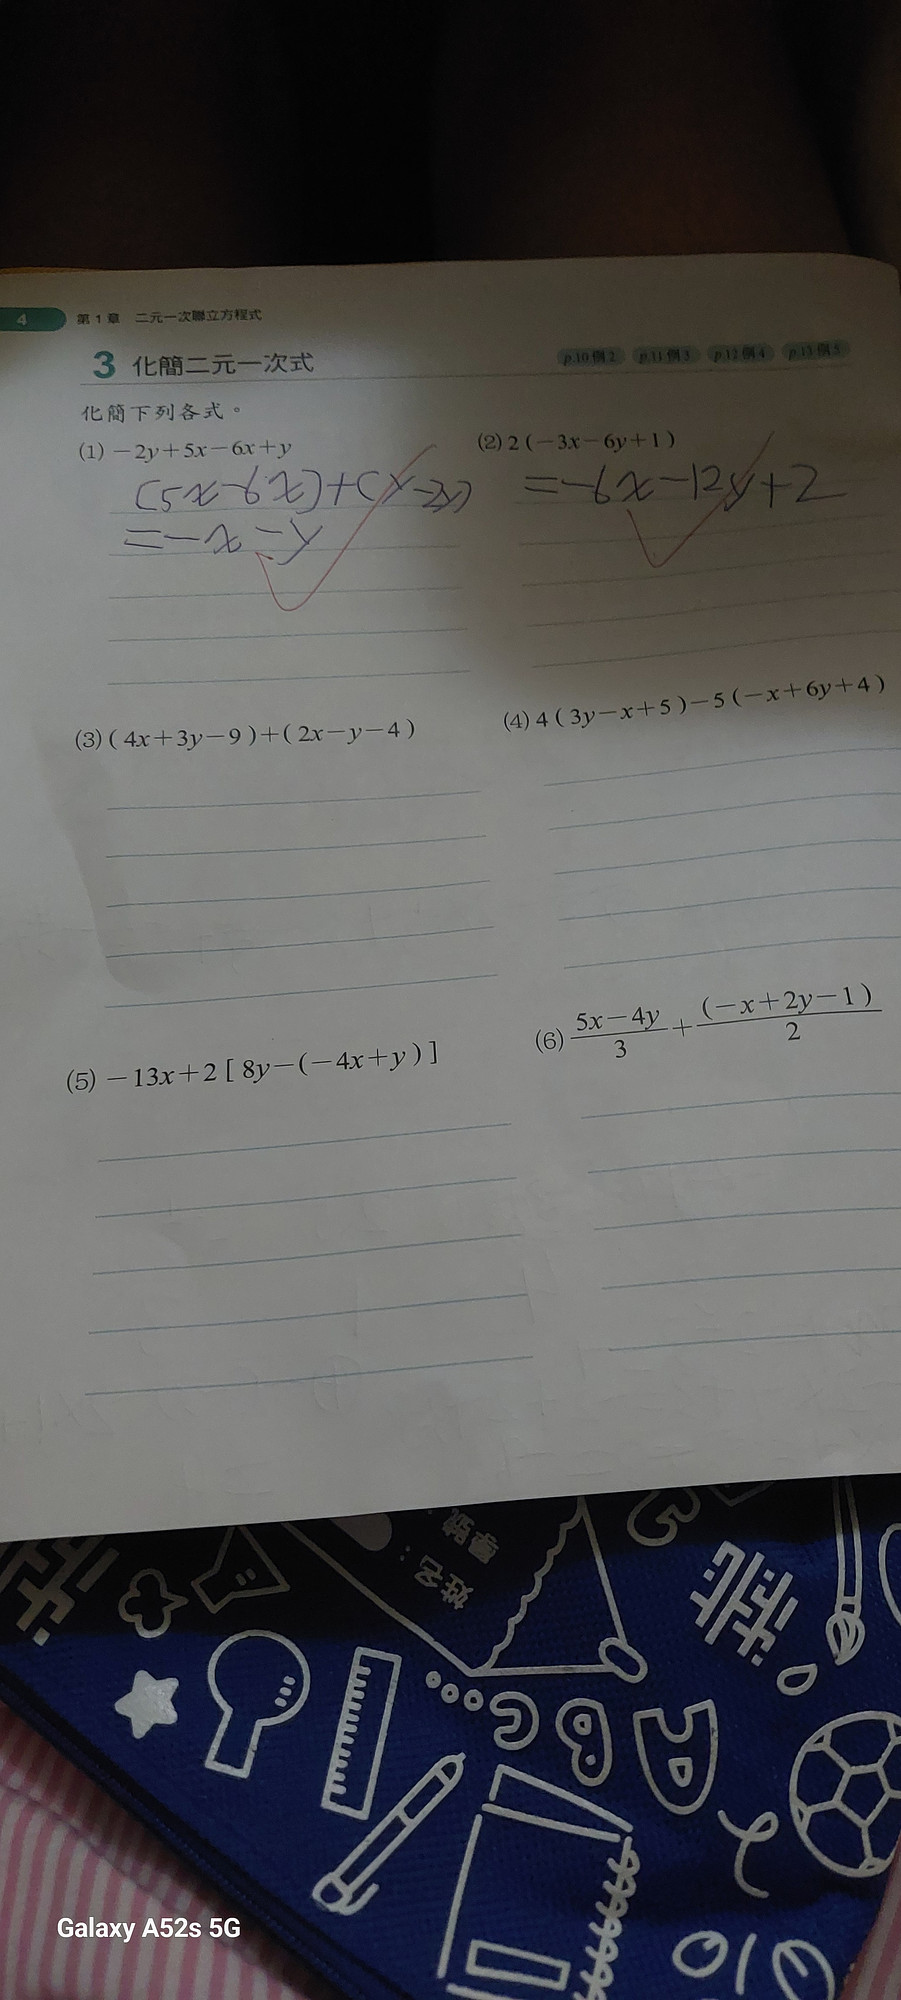 4 第1章 二元一次聯立方程式
3 化簡二元一次式 p.10例2 p.11例3 p.12例4 p.13例5
化簡下列各式。
(1) －2y＋5x－6x＋y
(5x-6x)+(y-2y)
=-x-y
(2) 2(－3x－6y＋1)
=-6x-12y+2
(3) (4x＋3y－9)＋(2x－y－4)
(4) 4(3y－x＋5)－5(－x＋6y＋4)
(5) －13x＋2[8y－(－4x＋y)]
(6) (5x－4y)/3＋(－x＋2y－1)/2
姓名：
A B C
Galaxy A52s 5G